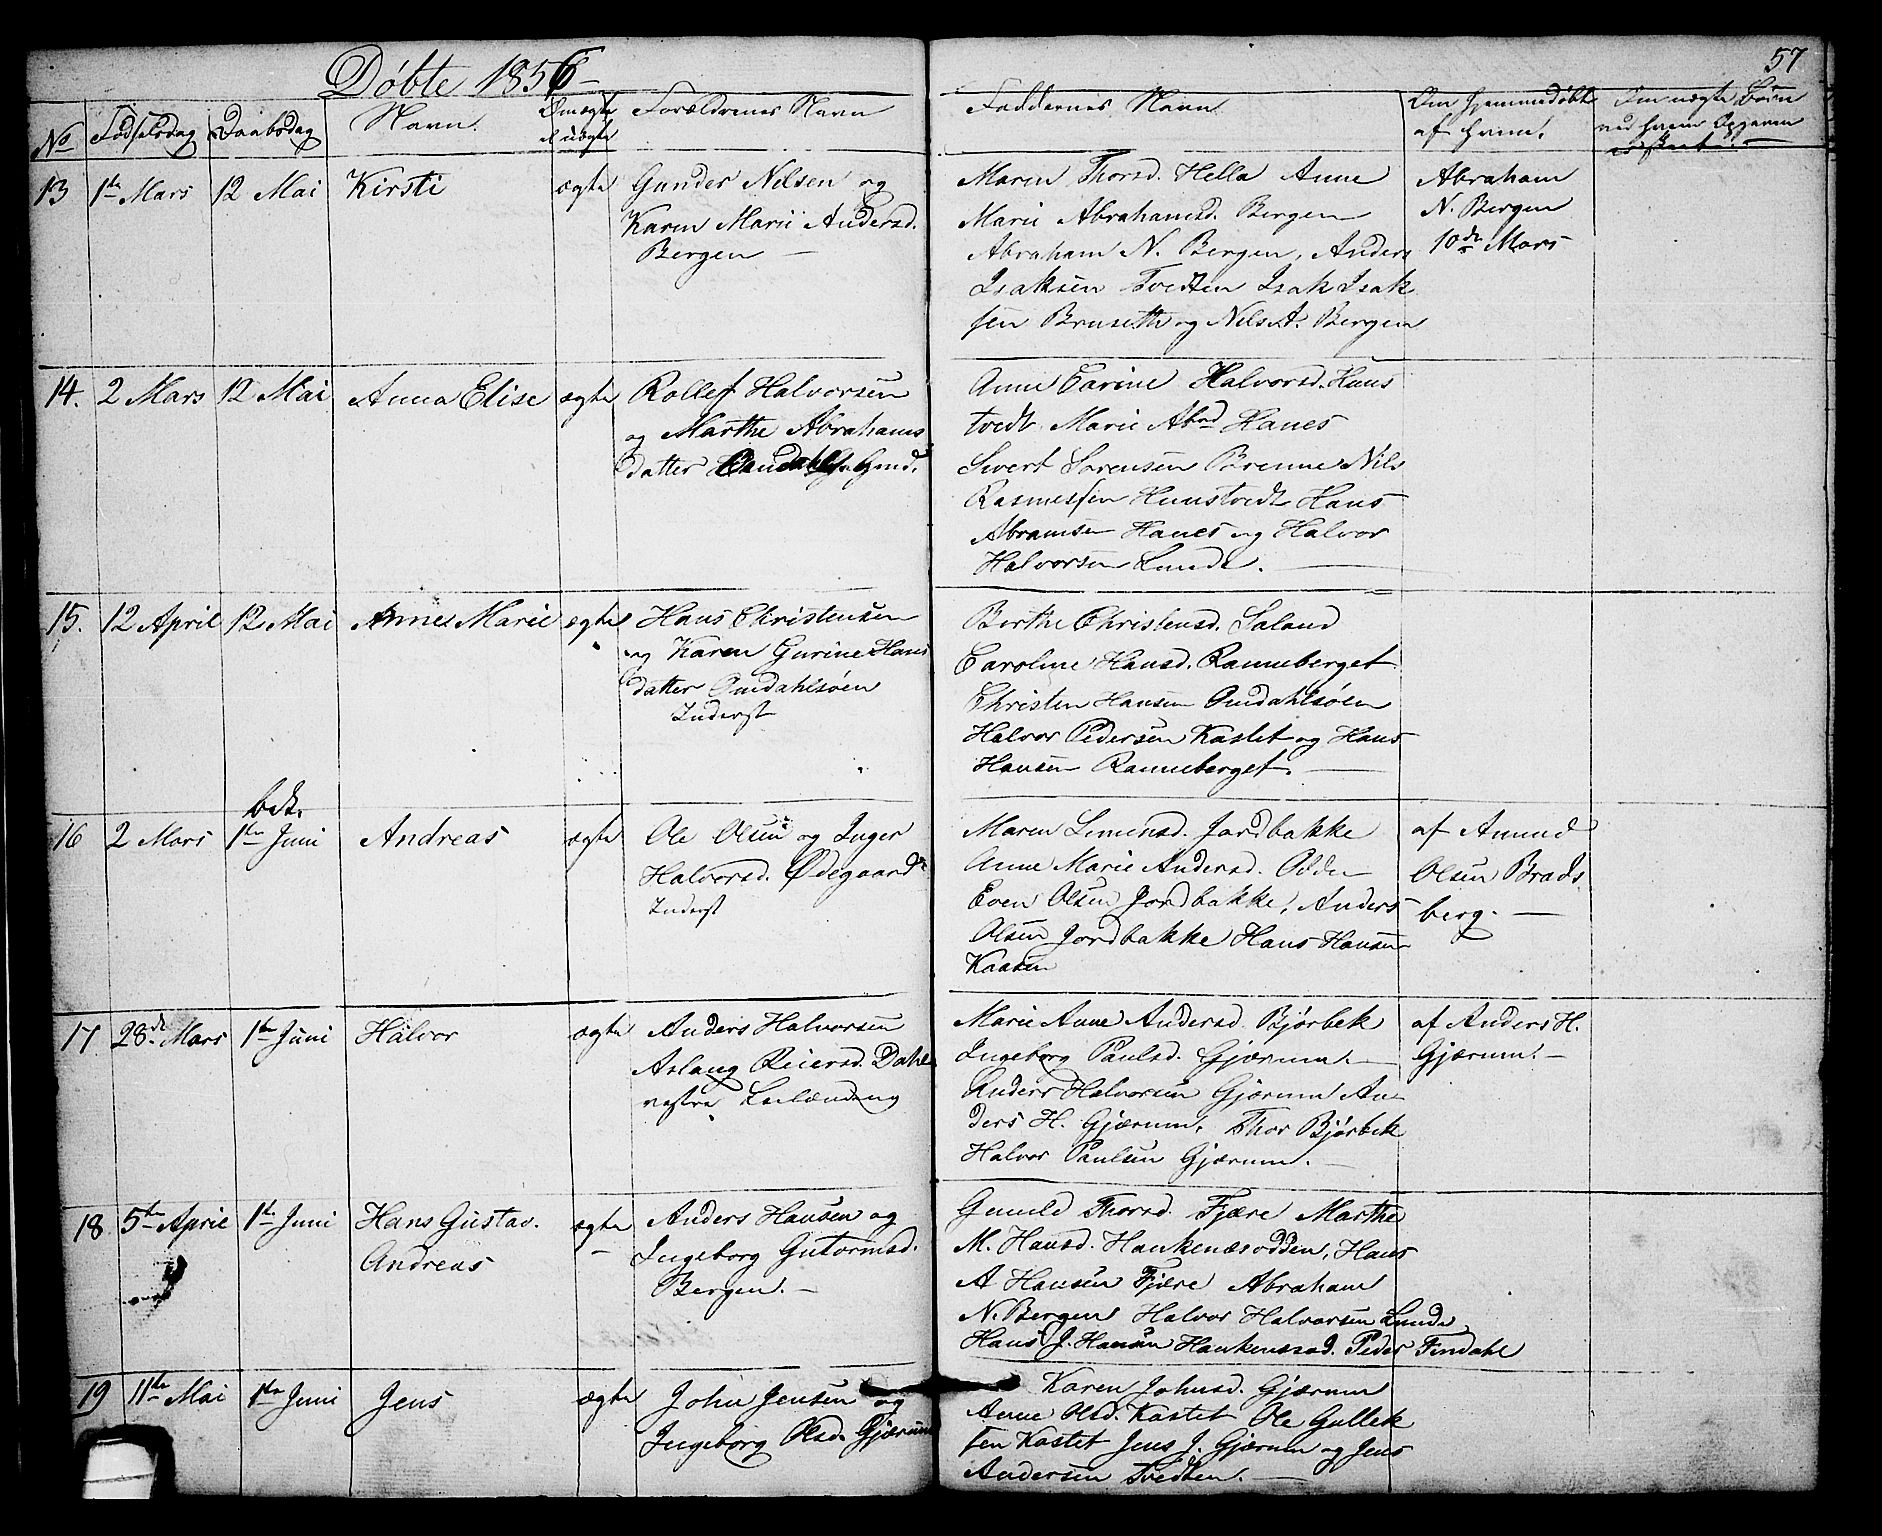 57
Døbte 1856
No Fødselsdag Daabsdag Navn. Om ægte el. uægte Forældrenes Navn Faddernes Navn Om hjemmedøbt af hvem. Om uægte Børn ved hvem Opgaven
13 1ste Mars 12 Mai Kirsti ægte
Gunder Nilsen og
Karen Marie Andersd.
Bergen
Maren Thorsd. Hella Anne
Marie Abrahamsd. Bergen
Abraham N. Bergen, Anders
Isaksen Tvedten Isak Isak
sen Bruseth og Nils A. Bergen
Abraham
N. Bergen
10de Mars
14. 2 Mars 12 Mai Anna Elise ægte
Rollef Halvorsen
og Marthe Abrahams
datter Grnd.
Anne Carine Halvorsd. Hans
tvedt Marie Abrd Hanes
Sivert Sørensen Brenne Nils
Rasmussen Hunstvedt Hans
Abramsen Hanes og Halvor
Halvorsen Lunde.
15. 12 April 12 Mai Anne Marie ægte
Hans Christensen
og Karen Gurine Hans
datter Omdahlsøen
Inderst
Berthe Christensd. Saland
Caroline Hansd. Ranneberget
Christen Hansen Omdahlsøen
Halvor Pedersen Kastet og Hans
Hansen Ranneberget.
bek.
16 2 Mars 1ste Juni Andreas ægte
Ole Olsen og Inger
Halvorsd. Ødegaard
Inderst
Maren Simensd. Jordbakke
Anne Marie Andersd. Odde
Even Olsen Jordbakke, Anders
Olsen Jordbakke Hans Hansen
Kaasen
af Amund
Olsen Brads
berg.
17 28de Mars 1ste Juni Halvor ægte
Anders Halvorsen
Aslaug Reiersd. Dahl
vestre Leilænding
Marie Anne Andersd Bjørbek
Ingeborg Paulsd. Gjærum.
Anders Halvorsen Gjærum An
ders H. Gjærum, Thor Bjørbek
Halvor Paulsen Gjærum.
af Anders H.
Gjærum.
18 5te April 1ste Juni Hans Gustav. ægte
Andreas
Anders Hansen og
Ingeborg Gutormsd.
Bergen.
Gunild Thorsd. Fjære Marthe
M. Hansd. Hankenæsodden, Hans
A Hansen Fjære Abraham
N. Bergen Halvor Halvorsen Lunde
Hans J. Hansen Hankenæsod. Peder Temdahl
19 11te Mai 1ste Juni Jens ægte
John Jensen og
Ingeborg Olsd. Gjærum
Karen Johnsd. Gjærum
Anne Olsd. Kastet Ole Gullek
sen Kastet Jens J. Gjærum og Jens
Andersen Tvedten.